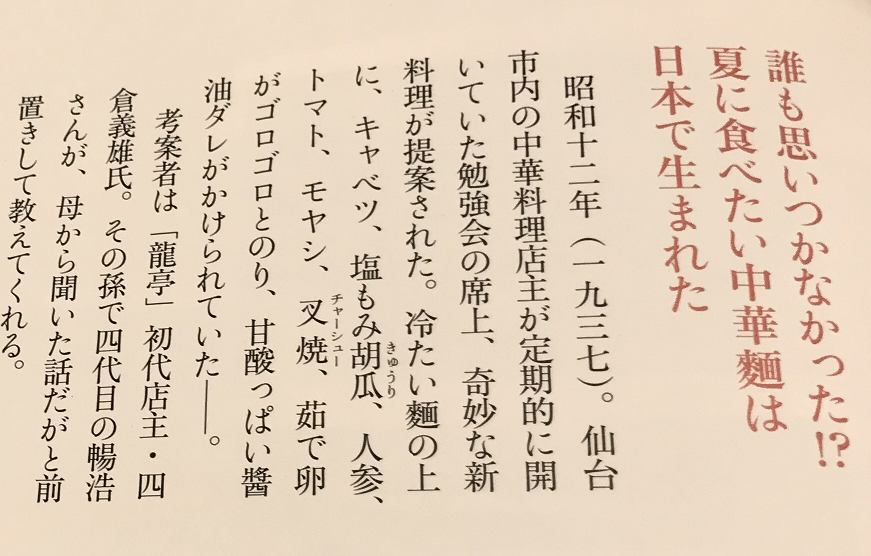 誰も思いつかなかった!?
夏に食べたい中華麵は
日本で生まれた
昭和十二年（一九三七）。仙台
市内の中華料理店主が定期的に開
いていた勉強会の席上、奇妙な新
料理が提案された。冷たい麵の上
に、キャベツ、塩もみ胡瓜、人参、
きゅうり
トマト、モヤシ、叉焼、茹で卵
チャーシュー
がゴロゴロとのり、甘酸っぱい醬
油ダレがかけられていた――。
考案者は「龍亭」初代店主・四
倉義雄氏。その孫で四代目の暢浩
さんが、母から聞いた話だがと前
置きして教えてくれる。